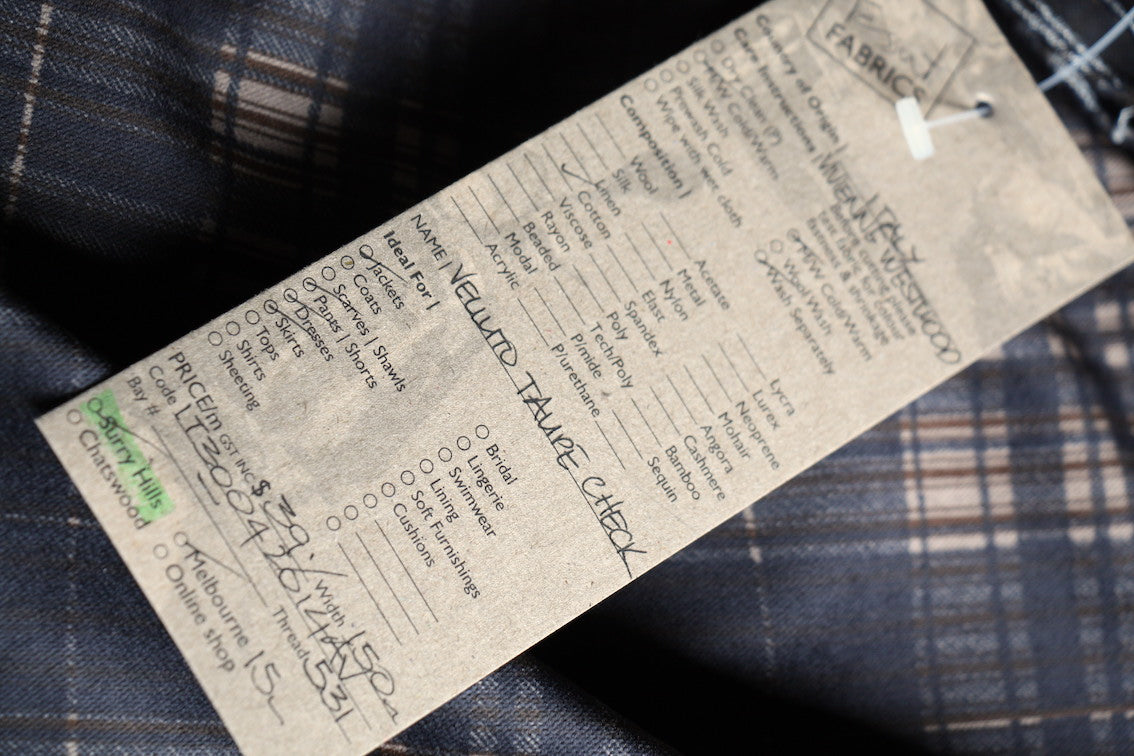 FABRICS
Country of Origin | ITALY
Care Instructions | VIVIEANNE WESTWOOD
Dry Clean (P)
M/W Cold/Warm
Silk Wash
Prewash Cold
Wipe with wet cloth
Before cutting please
test fabric for colour
fastness & shrinkage
H/W Cold/Warm
Wool Wash
Wash Separately
Composition |
Wool
Silk
Linen
✓ Cotton
Viscose
Rayon
Beaded
Modal
Acrylic
Acetate
Metal
Nylon
East
Spandex
Poly
Tech/Poly
P/mide
P/urethane
Lycra
Lurex
Neoprene
Mohair
Angora
Cashmere
Bamboo
Sequin
NAME | VELLUTO TAUPE CHECK
Ideal For |
Jackets
Coats
Scarves | Shawls
Pants | Shorts
Dresses
Skirts
Tops
Shirts
Sheeting
Bridal
Lingerie
Swimwear
Lining
Soft Furnishings
Cushions
PRICE/m GST INC $39./ Width 150
Code LT30042014
Thread 531
Bay #
Surry Hills
Chatswood
Melbourne
Online shop